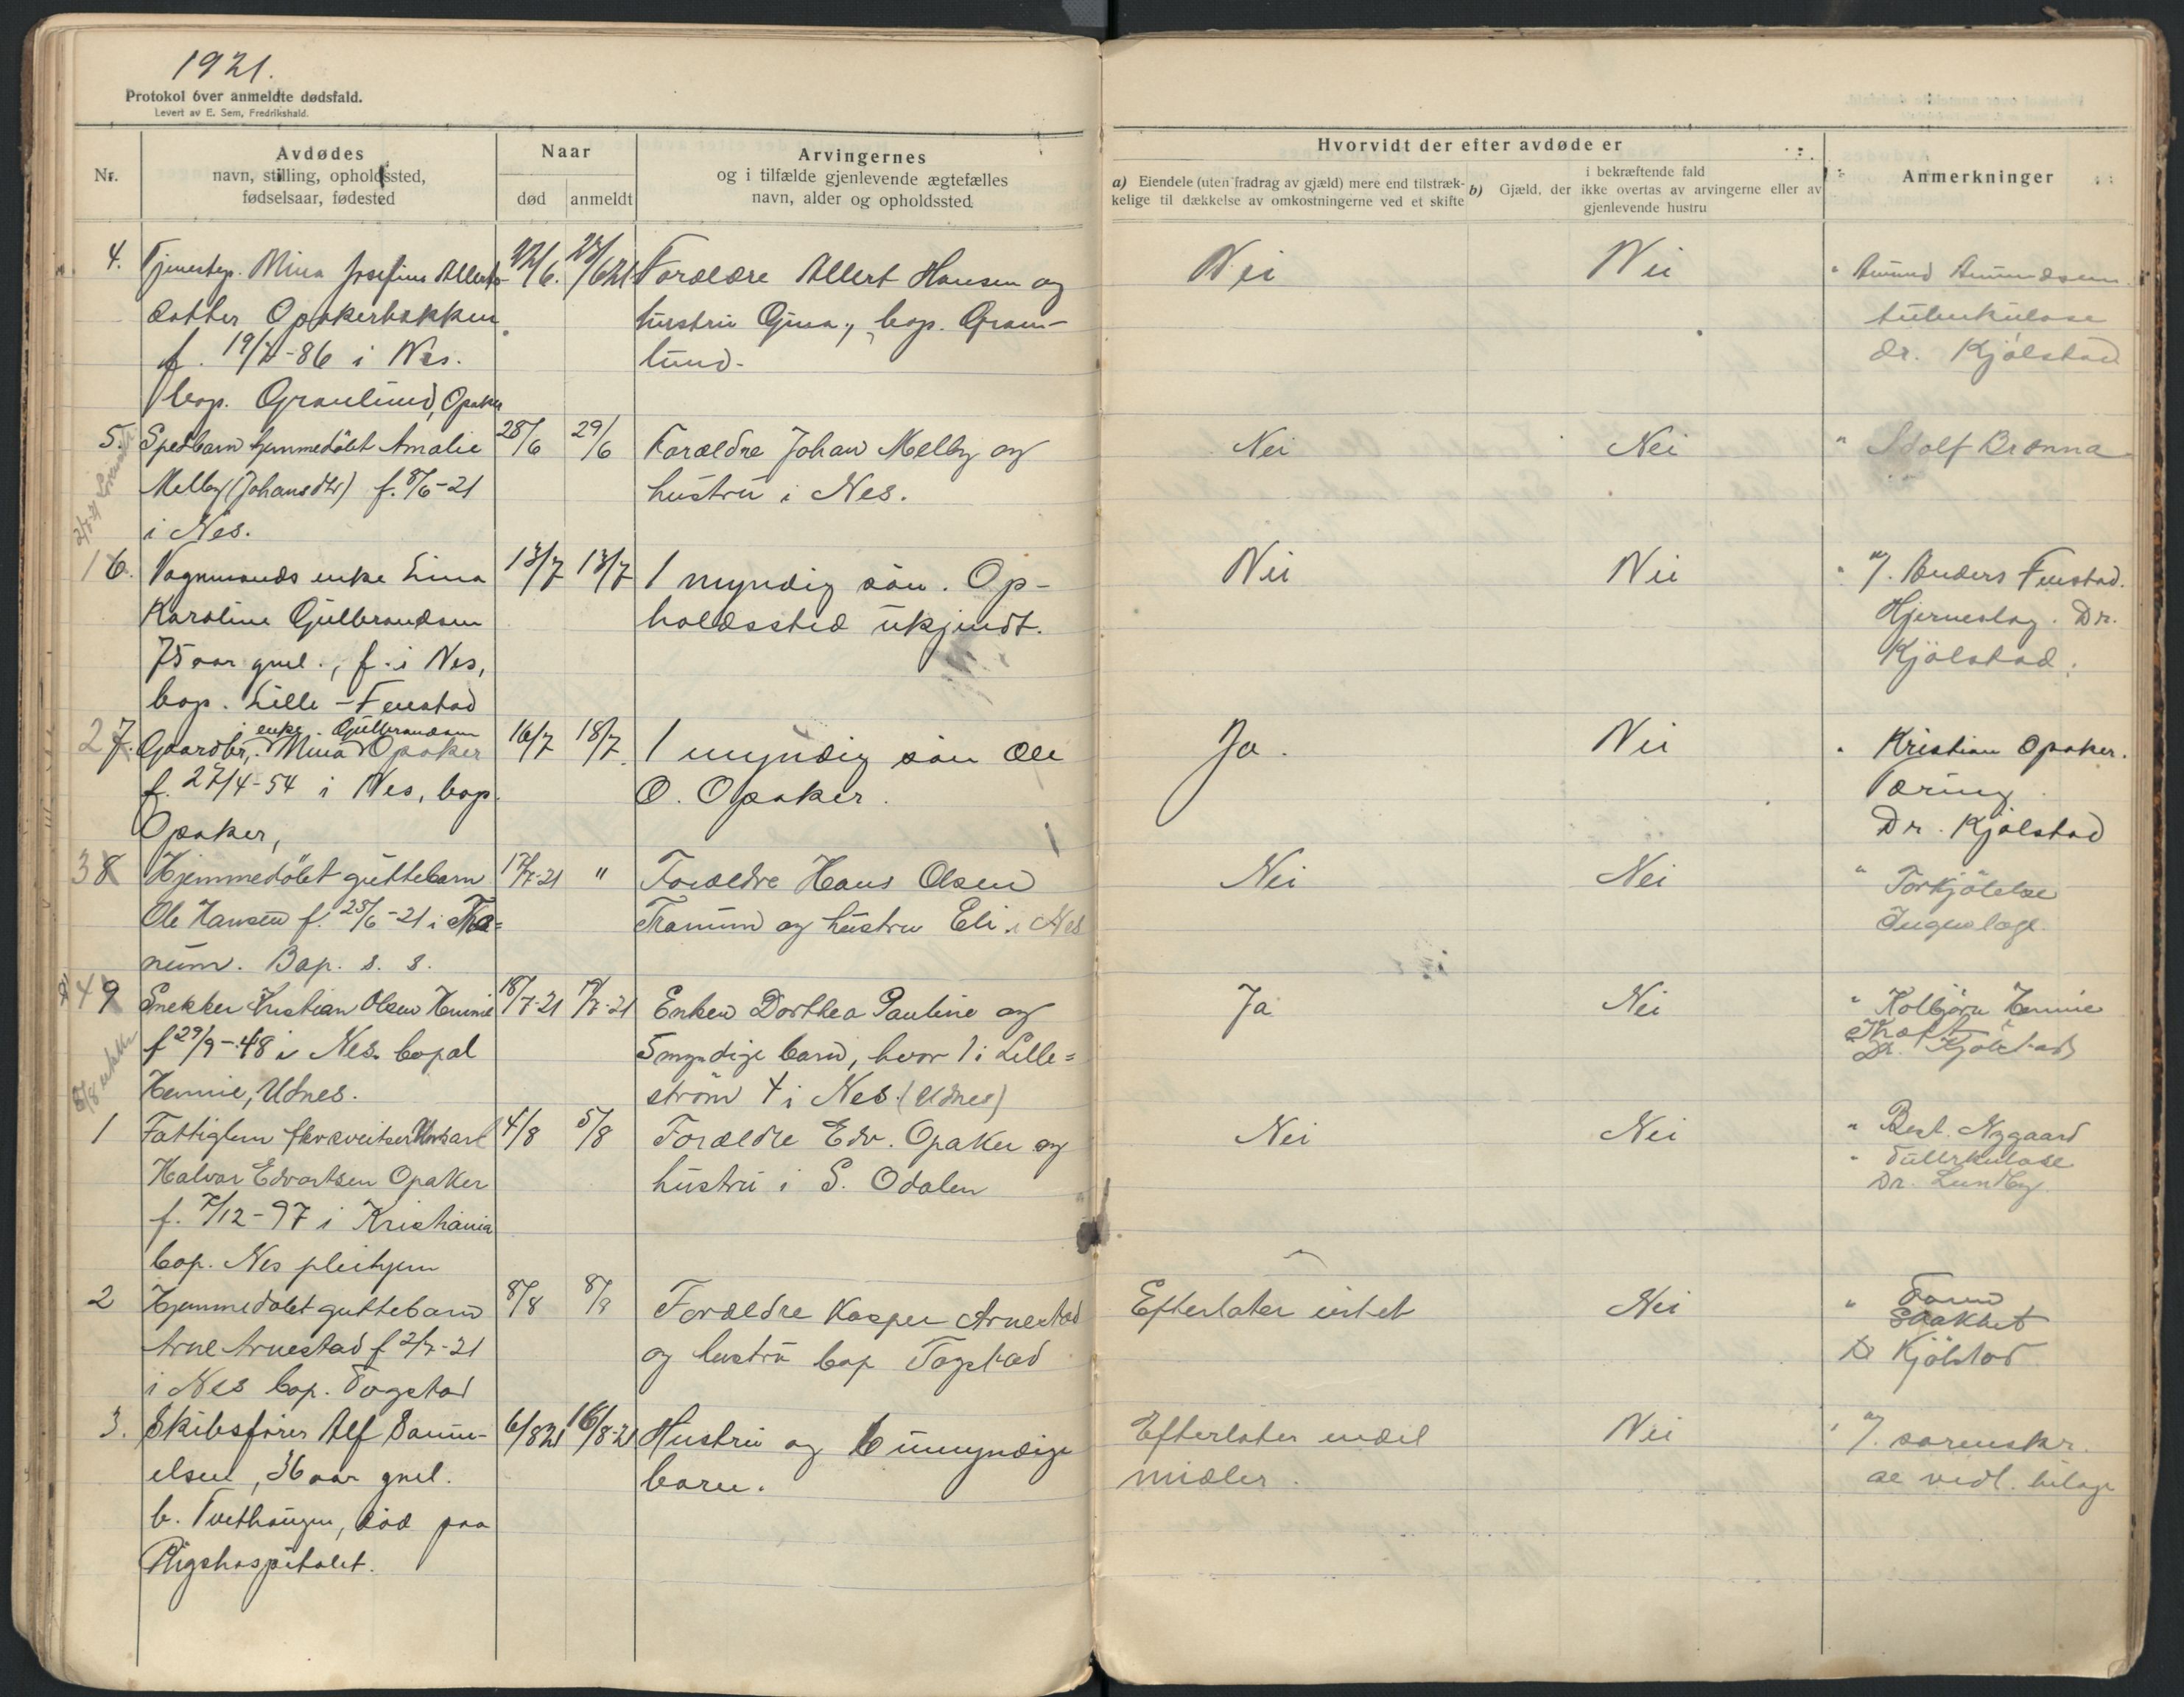 1921.
Protokol over anmeldte dødsfald.
Levert av E. Sem, Fredrikshald.
Nr.
Avdødes
navn, stilling, opholdssted,
fødselsaar, fødested
Naar
død
anmeldt
Arvingernes
og i tilfælde gjenlevende ægtefælles
navn, alder og opholdssted
Hvorvidt der efter avdøde er
a) Eiendele (uten fradrag av gjæld) mere end tilstræk-
kelige til dækkelse av omkostningerne ved et skifte
i bekræftende fald
b) Gjæld, der ikke overtas av arvingerne eller av
gjenlevende hustru
Anmerkninger
4. Tjenestep. Mina Josefine Allerts-
datter Opakerbakken
f. 19/ -86 i Nes.
bop. Granlund, Opaker
22/6. 27/6 21
Forældre Allert Hansen og
hustru Gina, bop. Gran-
lund.
Nei
Nei
" Amund Amundsen
tuberkulose
dr. Kjølstad
5. Spedbarn hjemmedøbt Amalie
Melby (Johansdtr) f. 8/6-21
i Nes.
28/6 29/6
Forældre Johan Melby og
hustru i Nes.
Nei
Nei
" Adolf Brønna
1 6. Vognmands enke Lina
Karoline Gulbrandsen
75 aar gml., f. i Nes,
bop. Lille-Fenstad
13/7 13/7
1 myndig søn. Op-
holdssted ukjendt.
Nei
Nei
" v/ Anders Fenstad.
Hjerneslag. Dr.
Kjølstad.
2 7. Gaardbr. enke Mina Gulbrandsen Opaker
f. 27/4-54 i Nes, bop.
Opaker,
16/7 18/7.
1 myndig søn Ole
O. Opaker.
Ja.
Nei
" Kristian Opaker.
Tæring.
Dr. Kjølstad
3 8 Hjemmedøbt guttebarn
Ole Hansen f. 25/6-21 i Tra=
num. Bop. s. s.
17/7-21 "
Forældre Hans Olsen
Tranum og hustru Eli i Nes
Nei
Nei
" Forkjølelse
Ingen læge
4 9 Snekker Kristian Olsen Hennie
f 29/9-48 i Nes. bopal
Hennie, Udnes.
18/7-21 19/7-21
Enken Dorthea Pauline og
5 myndige barn, hvor 1 i Lille=
strøm 4 i Nes. (Udnes)
Ja
Nei
" Kolbjørn Hennie
Kræft
Dr. Kjølstad
1 Fattiglem
Halvar Edvartsen Opaker
f. 7/12-97 i Kristiania
bop. Nes pleihjem
4/8 5/8
Forældre Edv. Opaker og
hustru i S. Odalen
Nei
Nei
" Best. Nygaard
" Tuberkulose
Dr. Lundby
2 Hjemmedøbt guttebarn
Arne Arnestad f 2/7-21
i Nes bop. Fogstad
8/8 8/8
Forældre Kasper Arnestad
og hustru bop Fogstad
Efterlater intet
Nei
"
Svakhet
Dr Kjølstad
3. Skibsfører Alf Samu-
elsen, 36 aar gml.
b. Tvethaugen, død paa
Rigshospitalet.
6/8 21 16/8-21
Hustru og 6 umyndige
barn.
Efterlater endel
midler.
Nei
" v/ sorenskr.
se vedl. bilag